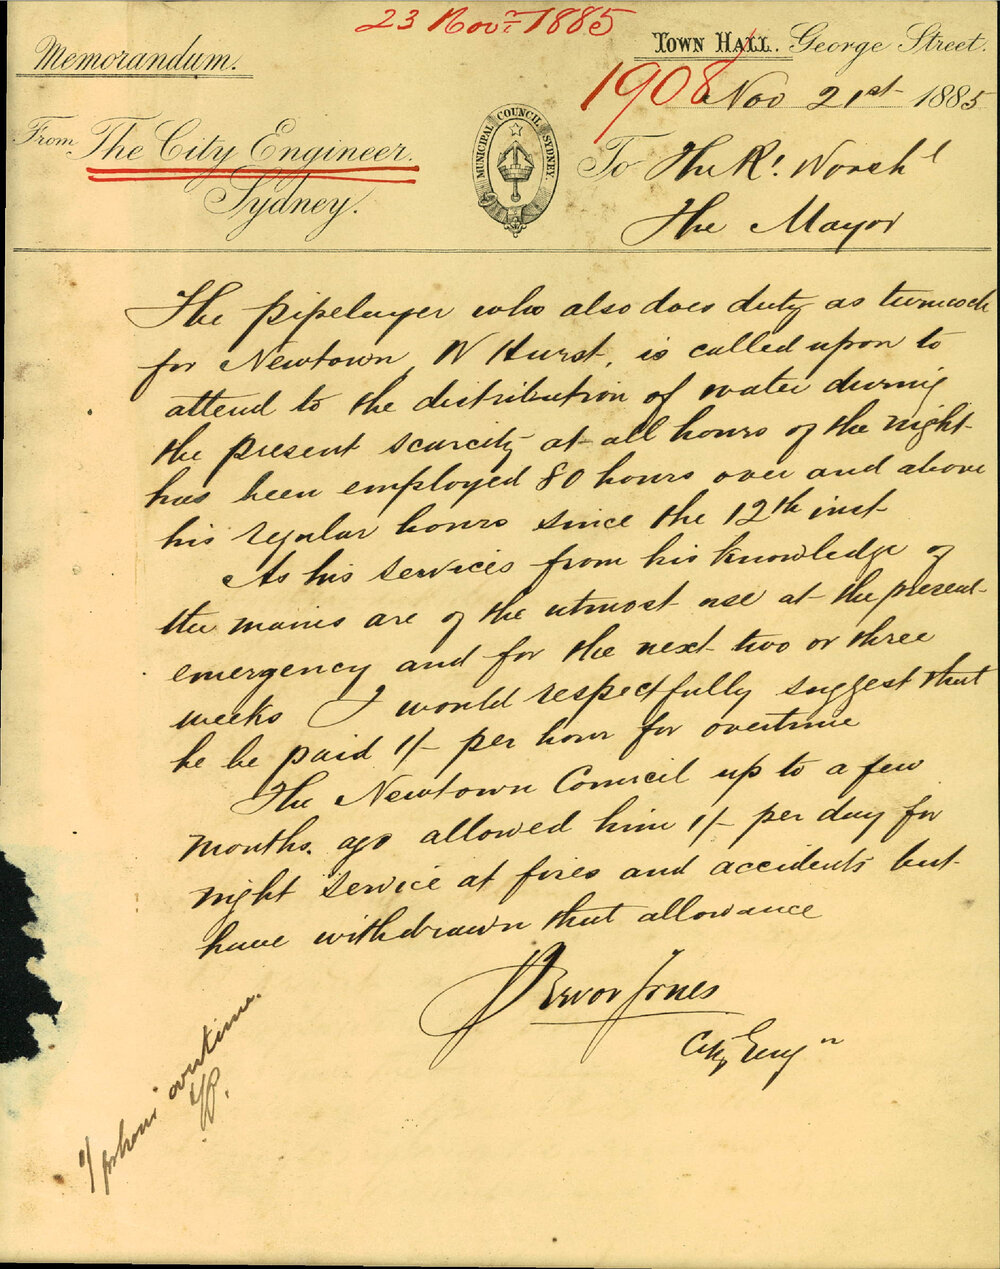 23 Novr 1885
Memorandum.
Town Hall. George Street.
1908
Nov 21st 1885
From The City Engineer.
Sydney.
MUNICIPAL COUNCIL SYDNEY.
To The Rt. Worshl
The Mayor
The pipelayer who also does duty as turncock
for Newtown, W Hurst, is called upon to
attend to the distribution of water during
the present scarcity at all hours of the night
has been employed 80 hours over and above
his regular hours since the 12th inst
As his services from his knowledge of
the mains are of the utmost use at the present
emergency and for the next two or three
weeks I would respectfully suggest that
he be paid 1/- per hour for overtime
The Newtown Council up to a few
months. ago allowed him 1/- per day for
night service at fires and accidents but
have withdrawn that allowance
Trevor Jones
City Engr
1/ p hour overtime.